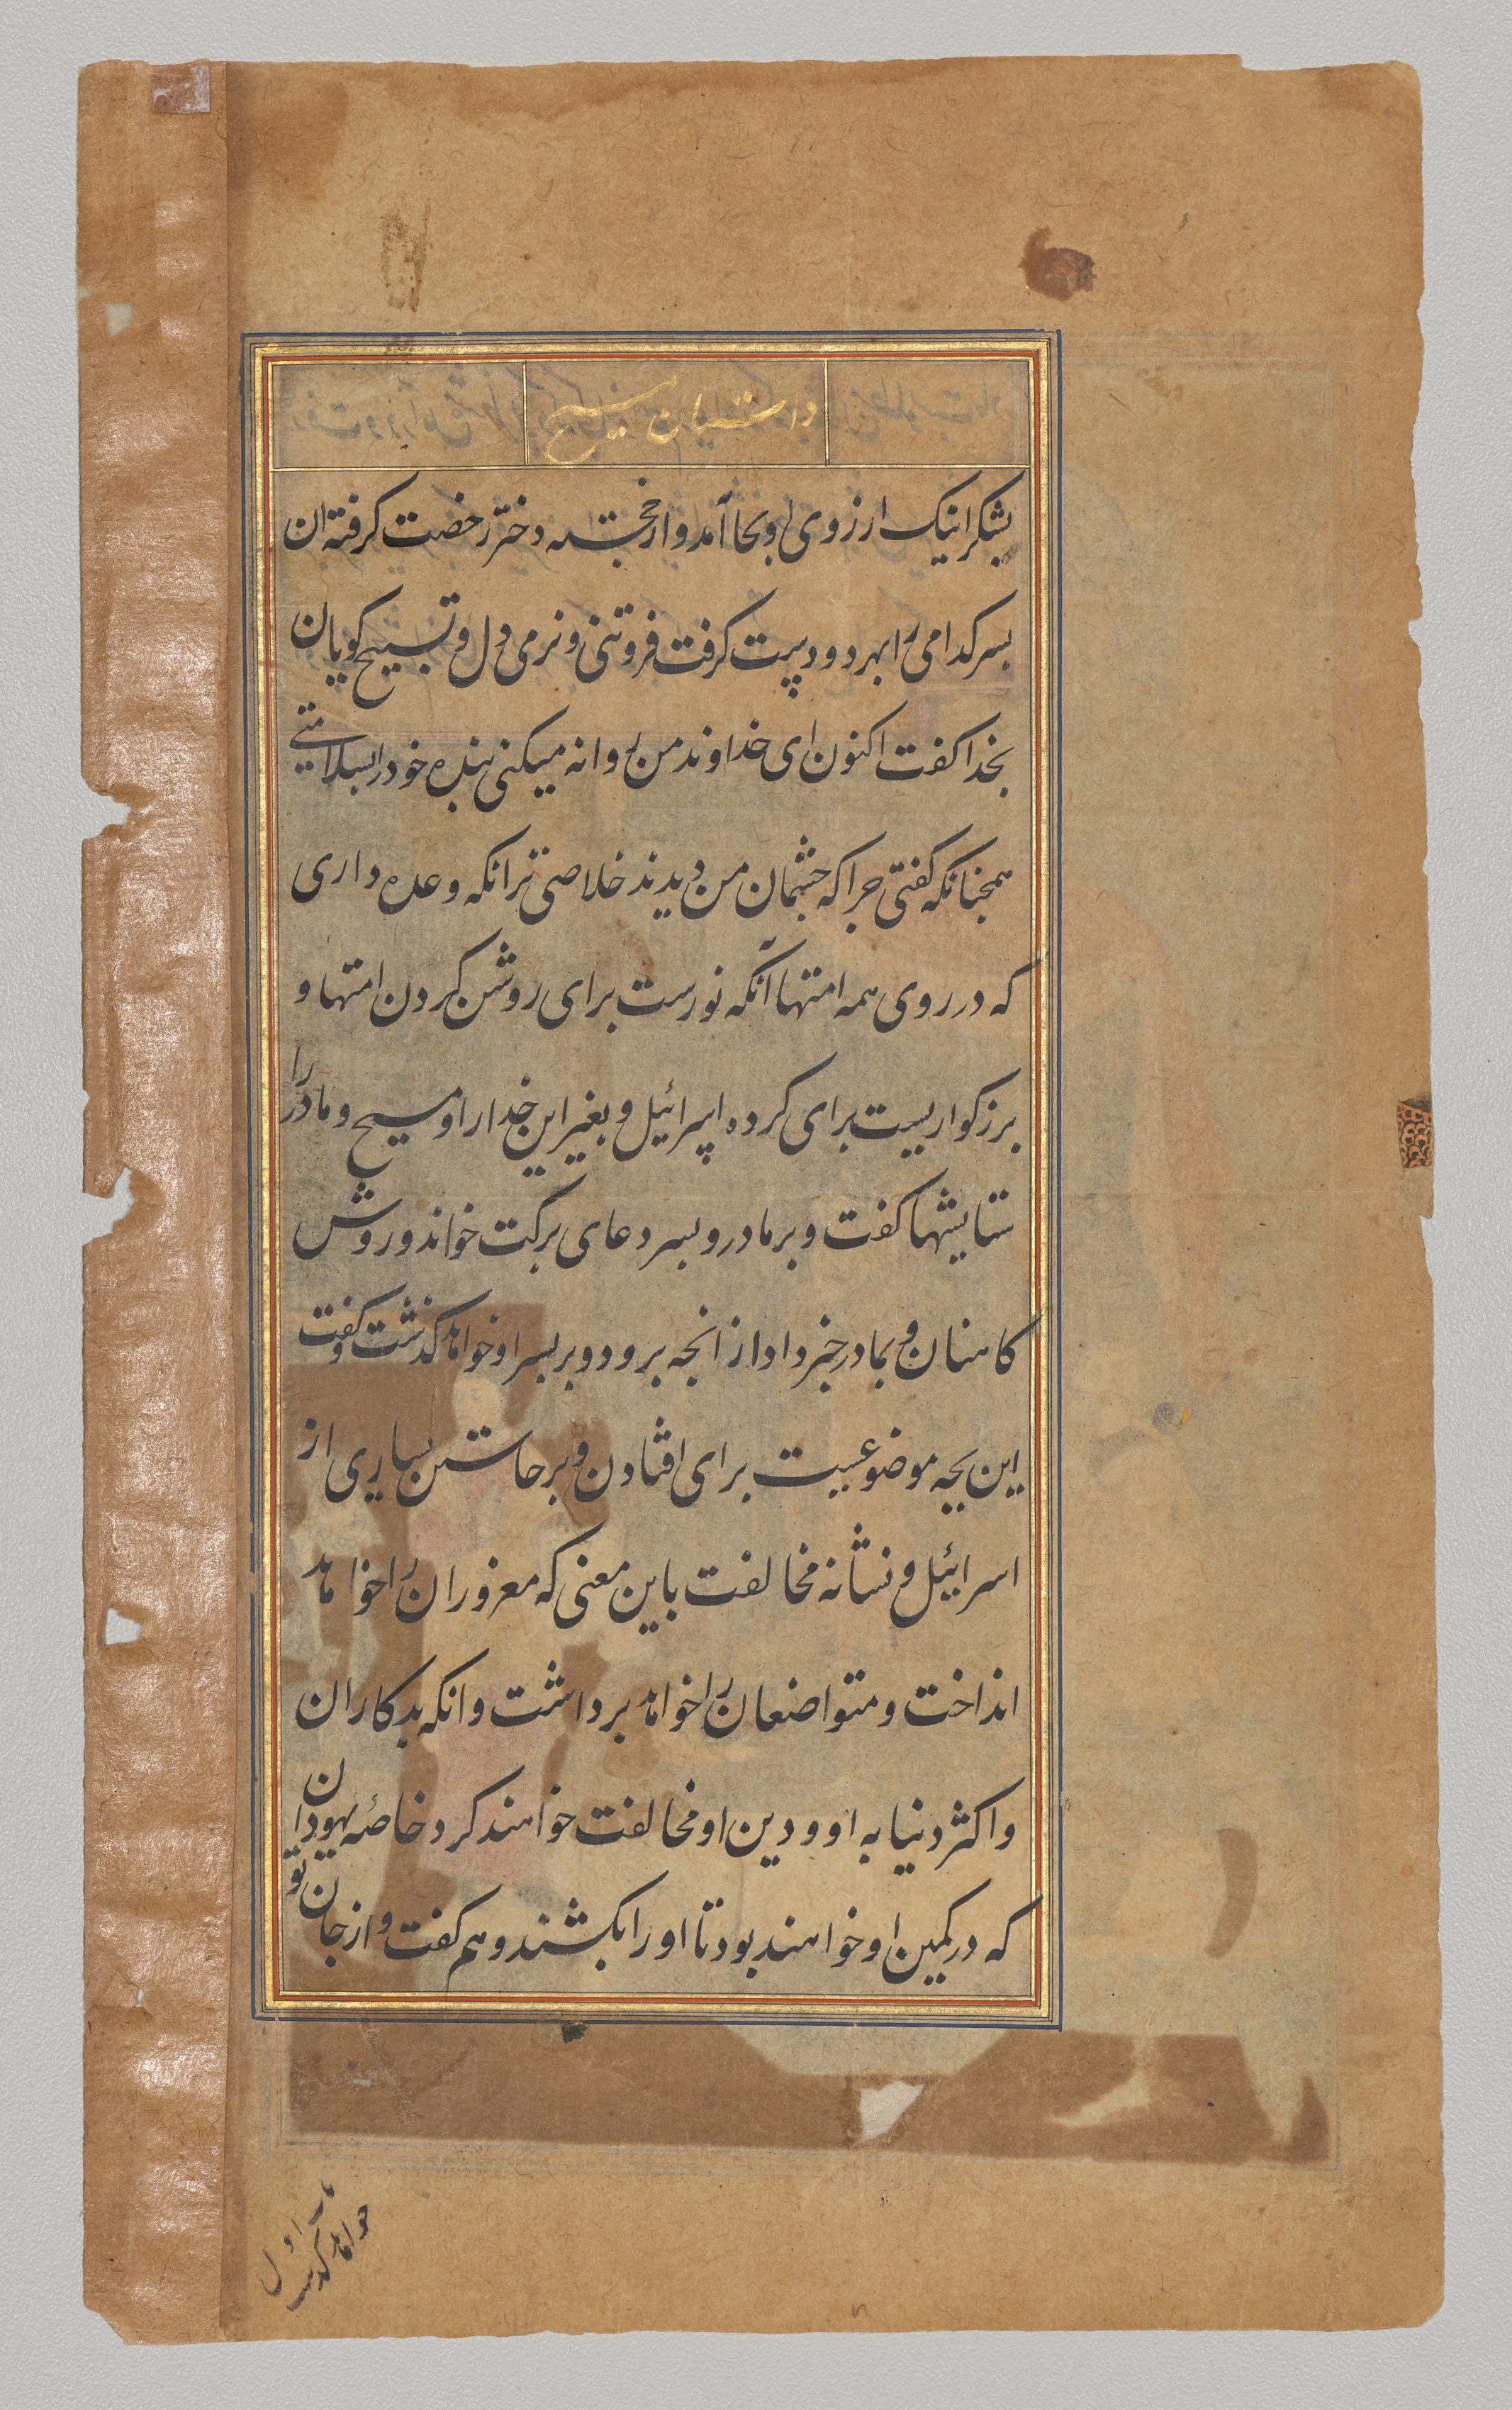 داستان مسیح
بشکر اینک ارزوی او بجا آمد و از خجسته دختر رخصت کرفته ان
پسر کدامی را بهر دو دست کرفت فروتنی و نرمی دل و تسبیح کویان
بخدا کفت اکنون ای خداوند من روانه میکنی بنده خود را بسلامتی
همچنانکه کفتی چرا که چشمان من دیدند خلاصی ترا نکه وعده داری
که در روی همه امتها آنکه نورست برای روشن کردن امتها و
بزرکواریست برای کرده اسرائیل و بغیر این خدا را و مسیح و مادر را
ستایشها کفت و بر مادر و پسر دعای برکت خواند و روش
کاهنان و بمادر خبر داد از انچه برو و بر پسر او خواهد کذشت و کفت
این بچه موضوعیست برای افتادن و برخاستن بسیاری از
اسرایئل و نشانه مخالفت باین معنی که مغروران را خواهد
انداخت و متواضعان را خواهد برداشت و انکه بدکاران
و اکثر دنیا به او و دین او مخالفت خواهند کرد خاصه یهودیان
که در کمین او خواهند بود تا او را بکشند و هم کفت و از جان تو
خواهد کذشت